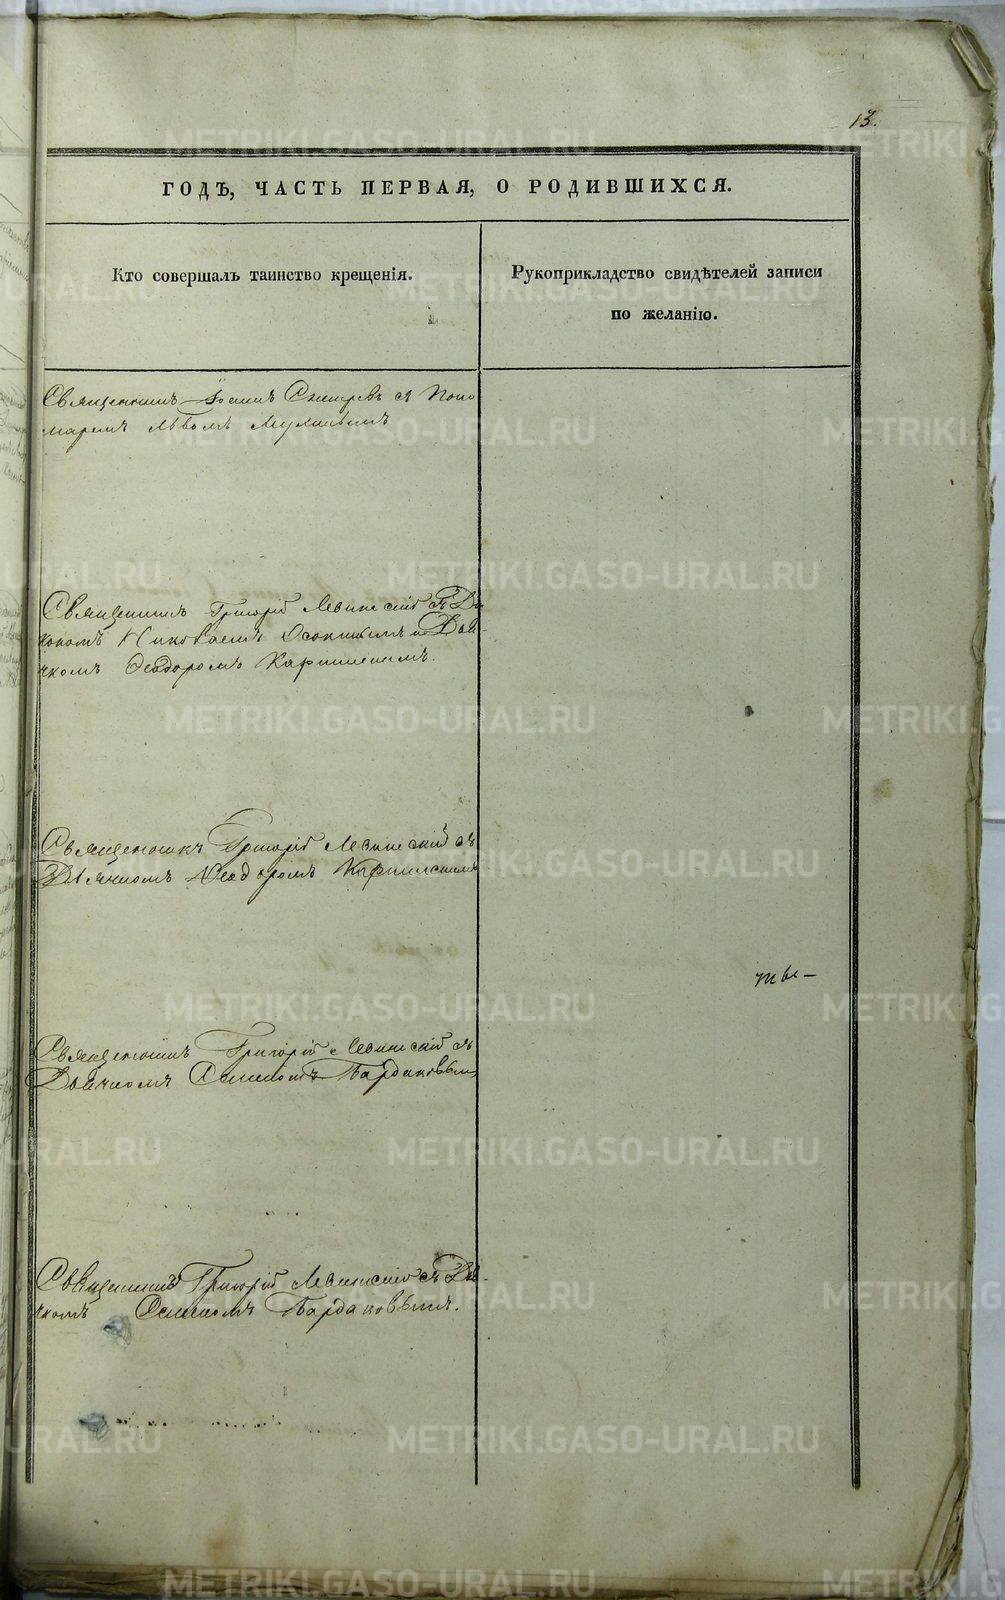 13.
ГОДЪ, ЧАСТЬ ПЕРВАЯ, О РОДИВШИХСЯ.
Кто совершалъ таинство крещенія.
Рукоприкладство свидѣтелей записи
по желанію.
Священникъ Іоаннъ съ Поно
маремъ Львомъ
Священникъ Григорій Левинскій съ Діа
кономъ Николаемъ Осокинымъ и Дья-
чкомъ Ѳеодоромъ Карпинскимъ.
Священникъ Григорій Левинскій съ
Дьячкомъ Ѳеодоромъ Карпинскимъ
Священникъ Григорій Левинскій съ
Дьячкомъ Семеномъ Бардаковым
Священникъ Григорій Левинскій съ Дья-
чкомъ Семеномъ Бардаковымъ.
METRIKI.GASO-URAL.RU